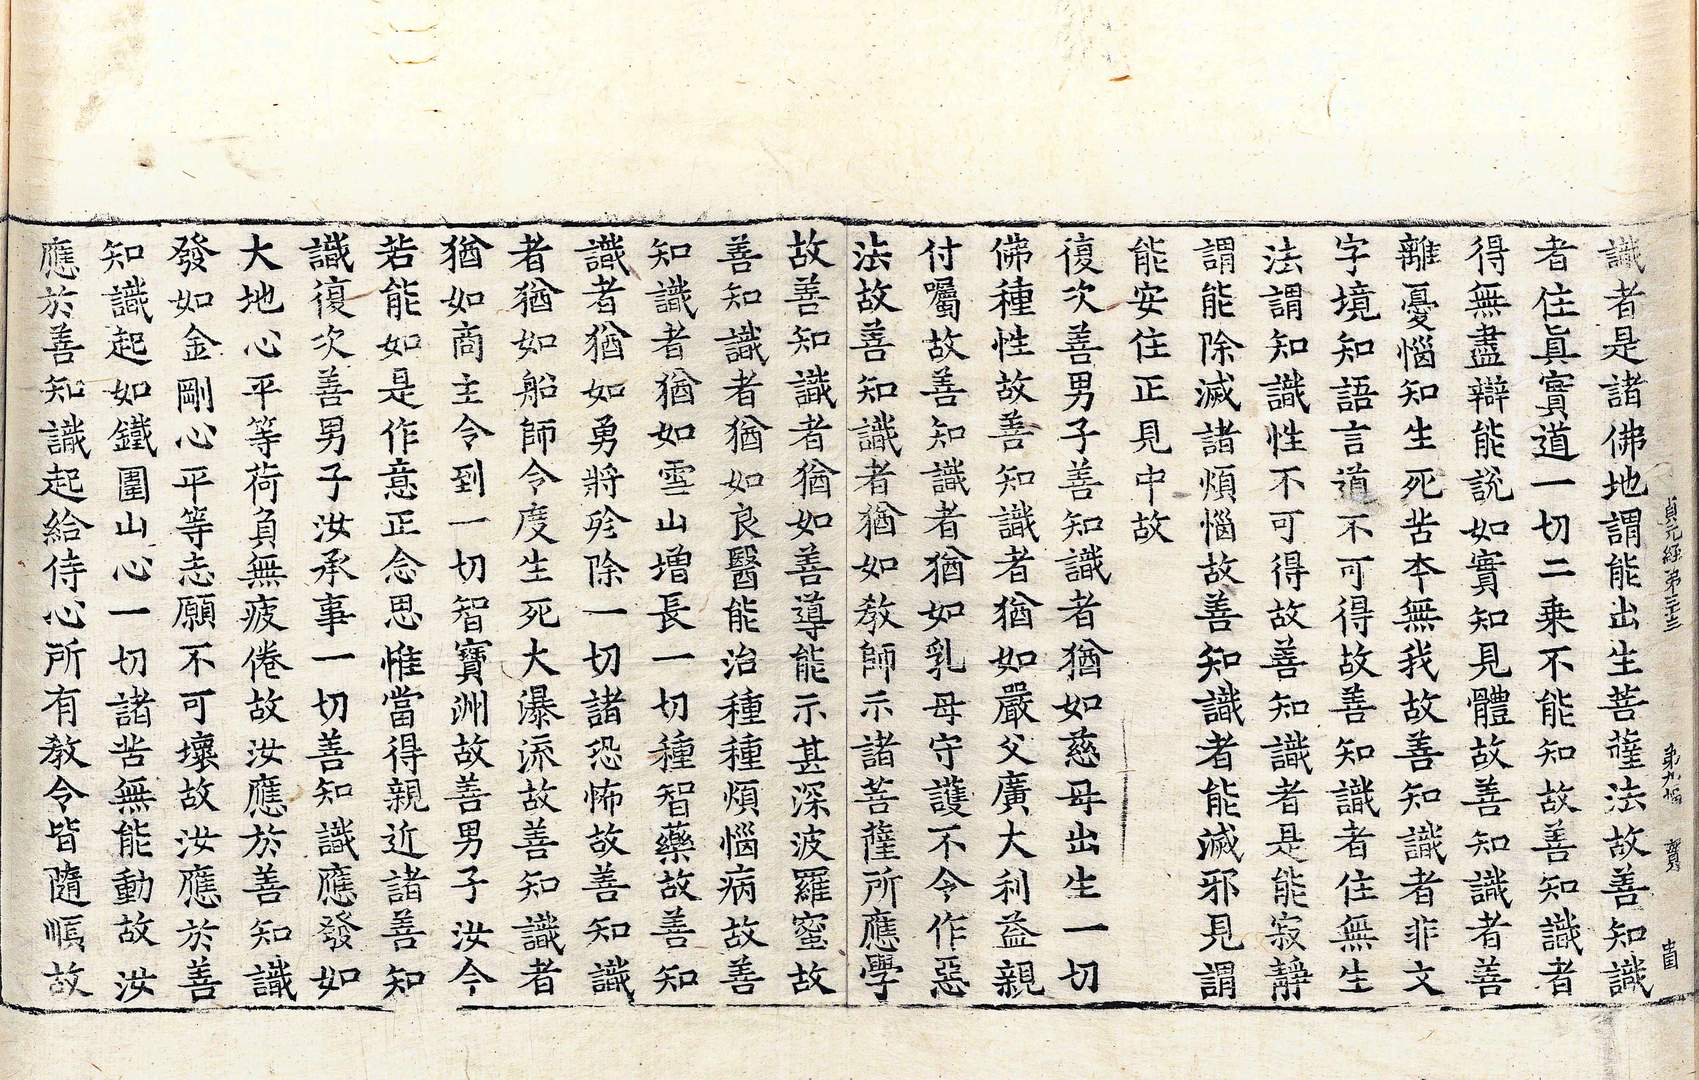 貞元經第三十三　第九幅　賀　𤰞
識者是諸佛地謂能出生菩薩法故善知識
者住眞實道一切二乗不能知故善知識者
得無盡辯能說如實知見體故善知識者善
離憂惱知生死苦夲無我故善知識者非文
字境知語言道不可得故善知識者住無生
法謂知識性不可得故善知識者是能寂靜
謂能除滅諸煩惱故善知識者能滅邪見謂
能安住正見中故
復次善男子善知識者猶如慈母出生一切
佛種性故善知識者猶如嚴父廣大利益親
付囑故善知識者猶如乳母守護不令作惡
法故善知識者猶如教師示諸菩薩所應學
故善知識者猶如善導能示甚深波羅蜜故
善知識者猶如良醫能治種種煩惱病故善
知識者猶如雪山增長一切種智藥故善知
識者猶如勇將殄除一切諸恐怖故善知識
者猶如船師令度生死大瀑流故善知識者
猶如商主令到一切智寶洲故善男子汝今
若能如是作意正念思惟當得親近諸善知
識復次善男子汝承事一切善知識應發如
大地心平等荷負無疲倦故汝應於善知識
發如金剛心平等志願不可壞故汝應於善
知識起如鐵圍山心一切諸苦無能動故汝
應於善知識起給侍心所有教令皆隨順故